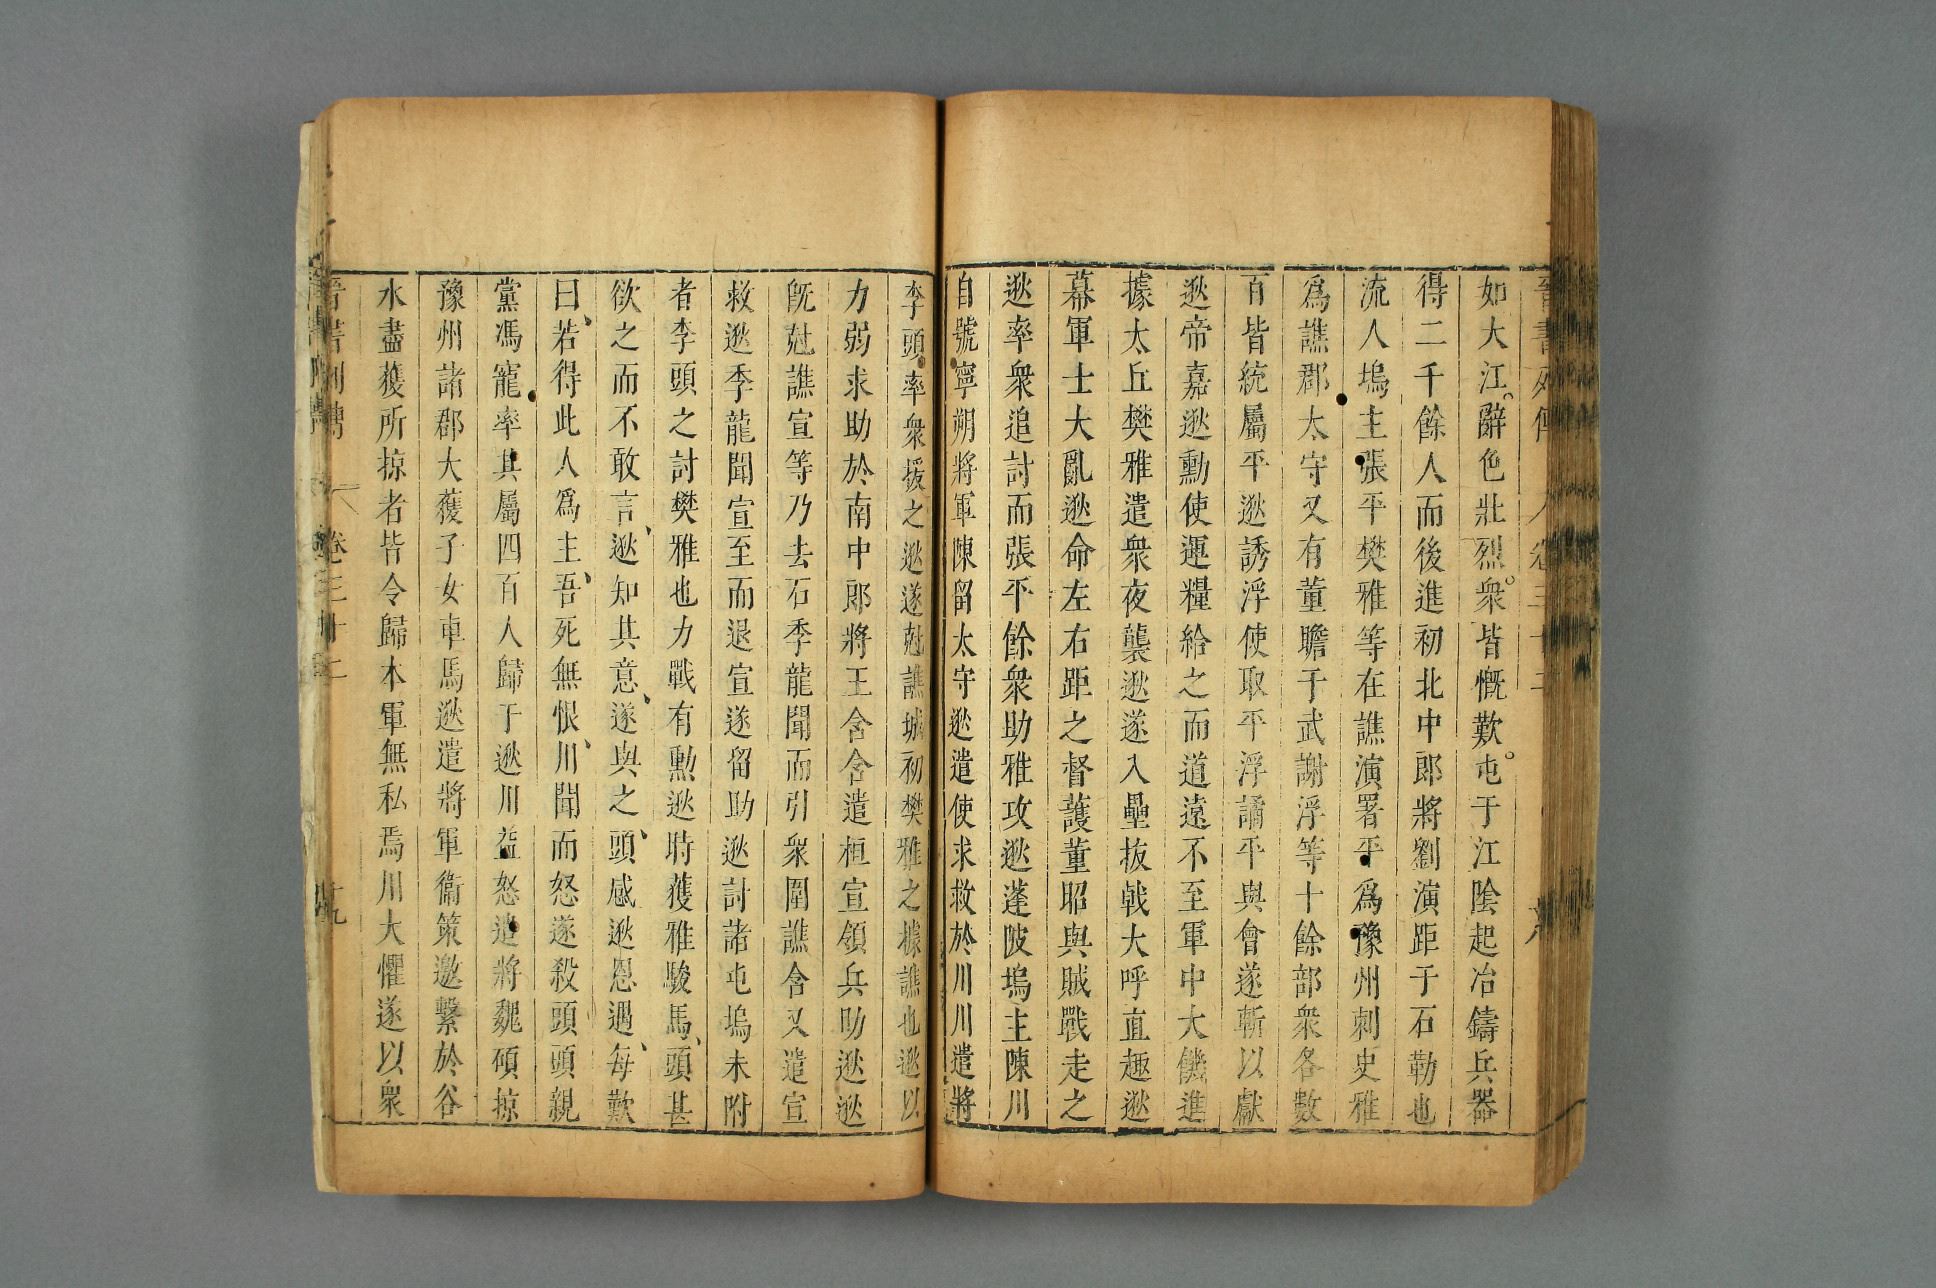 晉書列傳 卷三十二 十八
如大江辭色壯烈衆皆慨歎屯于江陰起冶鑄兵器
得二千餘人而後進初北中郎將劉演距于石勒也
流人塢主張平樊雅等在譙演署平爲豫州刺史雅
爲譙郡太守又有董瞻于武謝浮等十餘部衆各數
百皆統屬平逖誘浮使取平浮譎平與會遂斬以獻
逖帝嘉逖勳使運糧給之而道遠不至軍中大饑進
據太丘樊雅遣衆夜襲逖遂入壘拔戟大呼直趣逖
幕軍士大亂逖命左右距之督護董昭與賊戰走之
逖率衆追討而張平餘衆助雅攻逖蓬陂塢主陳川
自號寧朔將軍陳留太守逖遣使求救於川川遣將
李頭率衆援之逖遂尅譙城初樊雅之據譙也逖以
力弱求助於南中郎將王含含遣桓宣領兵助逖逖
旣尅譙宣等乃去石季龍聞而引衆圍譙含又遣宣
救逖季龍聞宣至而退宣遂留助逖討諸屯塢未附
者李頭之討樊雅也力戰有勳逖時獲雅駿馬頭甚
欲之而不敢言逖知其意遂與之頭感逖恩遇每歎
曰若得此人爲主吾死無恨川聞而怒遂殺頭頭親
黨馮寵率其屬四百人歸于逖川益怒遣將魏碩掠
豫州諸郡大獲子女車馬逖遣將軍衞策邀擊於谷
水盡獲所掠者皆令歸本軍無私焉川大懼遂以衆
晉書列傳 卷三十二 十九